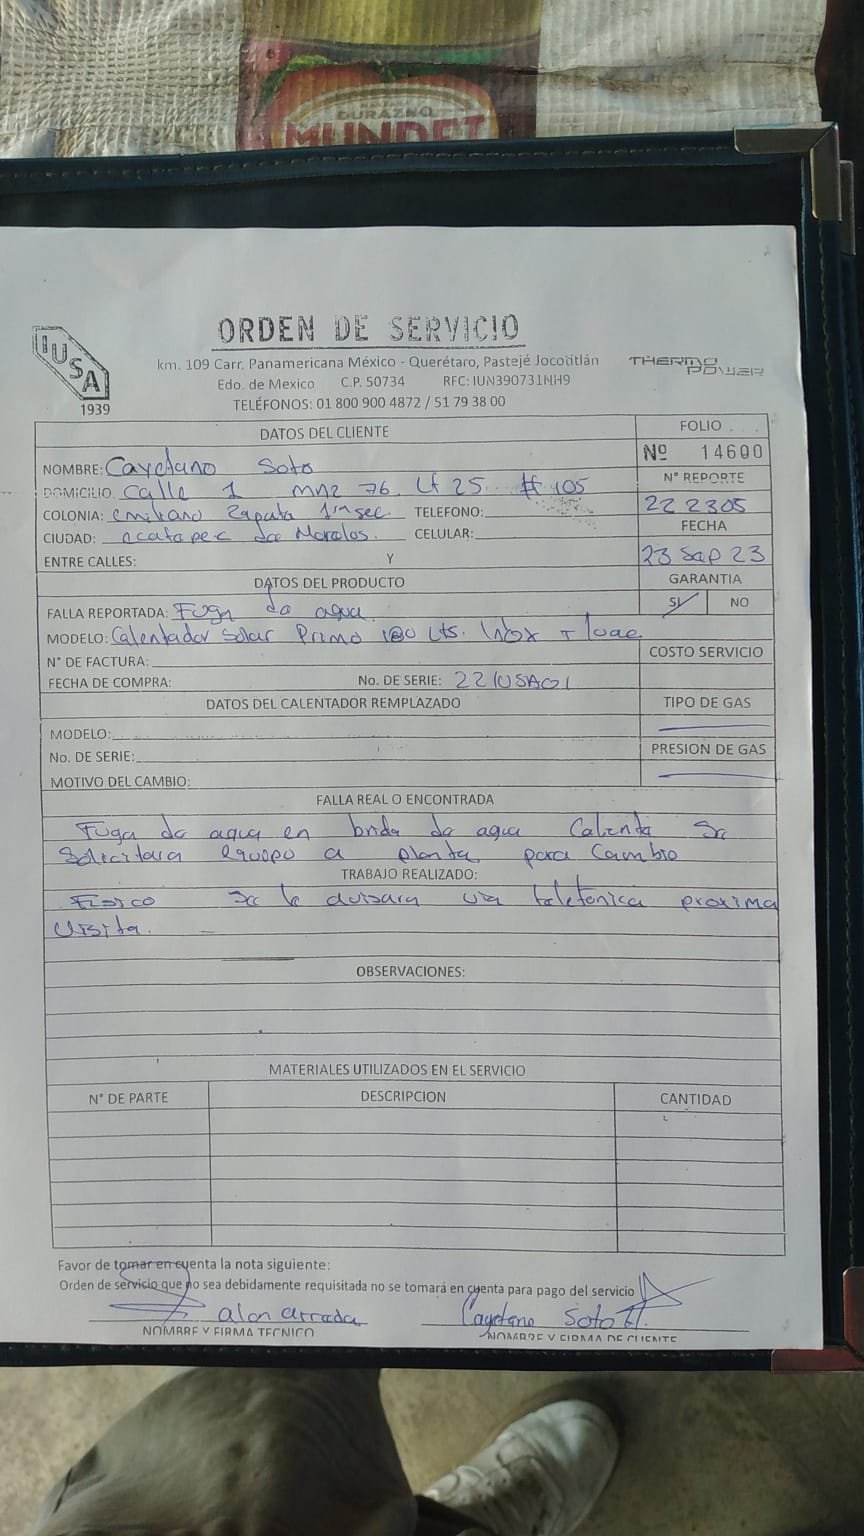 DURAZNO
MUNDET
IUSA
1939
ORDEN DE SERVICIO
km. 109 Carr. Panamericana México - Querétaro, Pastejé Jocotitlán
Edo. de Mexico C.P. 50734 RFC: IUN390731NH9
TELÉFONOS: 01 800 900 4872 / 51 79 38 00
THERMO POWER
DATOS DEL CLIENTE
FOLIO
Nº 14600
NOMBRE: Cayetano Soto
N° REPORTE
DOMICILIO: Calle 1 mnz 76. Lt 25 # 105
22 2305
COLONIA: emiliano Zapata 1ra sec. TELEFONO:
FECHA
CIUDAD: ecatepec de Morelos. CELULAR:
23 Sep 23
ENTRE CALLES: Y
DATOS DEL PRODUCTO
GARANTIA
FALLA REPORTADA: Fuga de agua.
SI NO
MODELO: Calentador Solar Primo 180 Lts. Inox
COSTO SERVICIO
N° DE FACTURA:
FECHA DE COMPRA: No. DE SERIE: 22IUSA01
DATOS DEL CALENTADOR REMPLAZADO
TIPO DE GAS
MODELO:
PRESION DE GAS
No. DE SERIE:
MOTIVO DEL CAMBIO:
FALLA REAL O ENCONTRADA
Fuga de agua en brida de agua Caliente Se
Solicitara equipo a planta para Cambio
TRABAJO REALIZADO:
Fisico Se le avisara via telefonica proxima
Visita.
OBSERVACIONES:
MATERIALES UTILIZADOS EN EL SERVICIO
N° DE PARTE DESCRIPCION CANTIDAD
Favor de tomar en cuenta la nota siguiente:
Orden de servicio que no sea debidamente requisitada no se tomará en cuenta para pago del servicio
Cayetano Soto H.
NOMBRE Y FIRMA TECNICO NOMBRE Y FIRMA DE CLIENTE